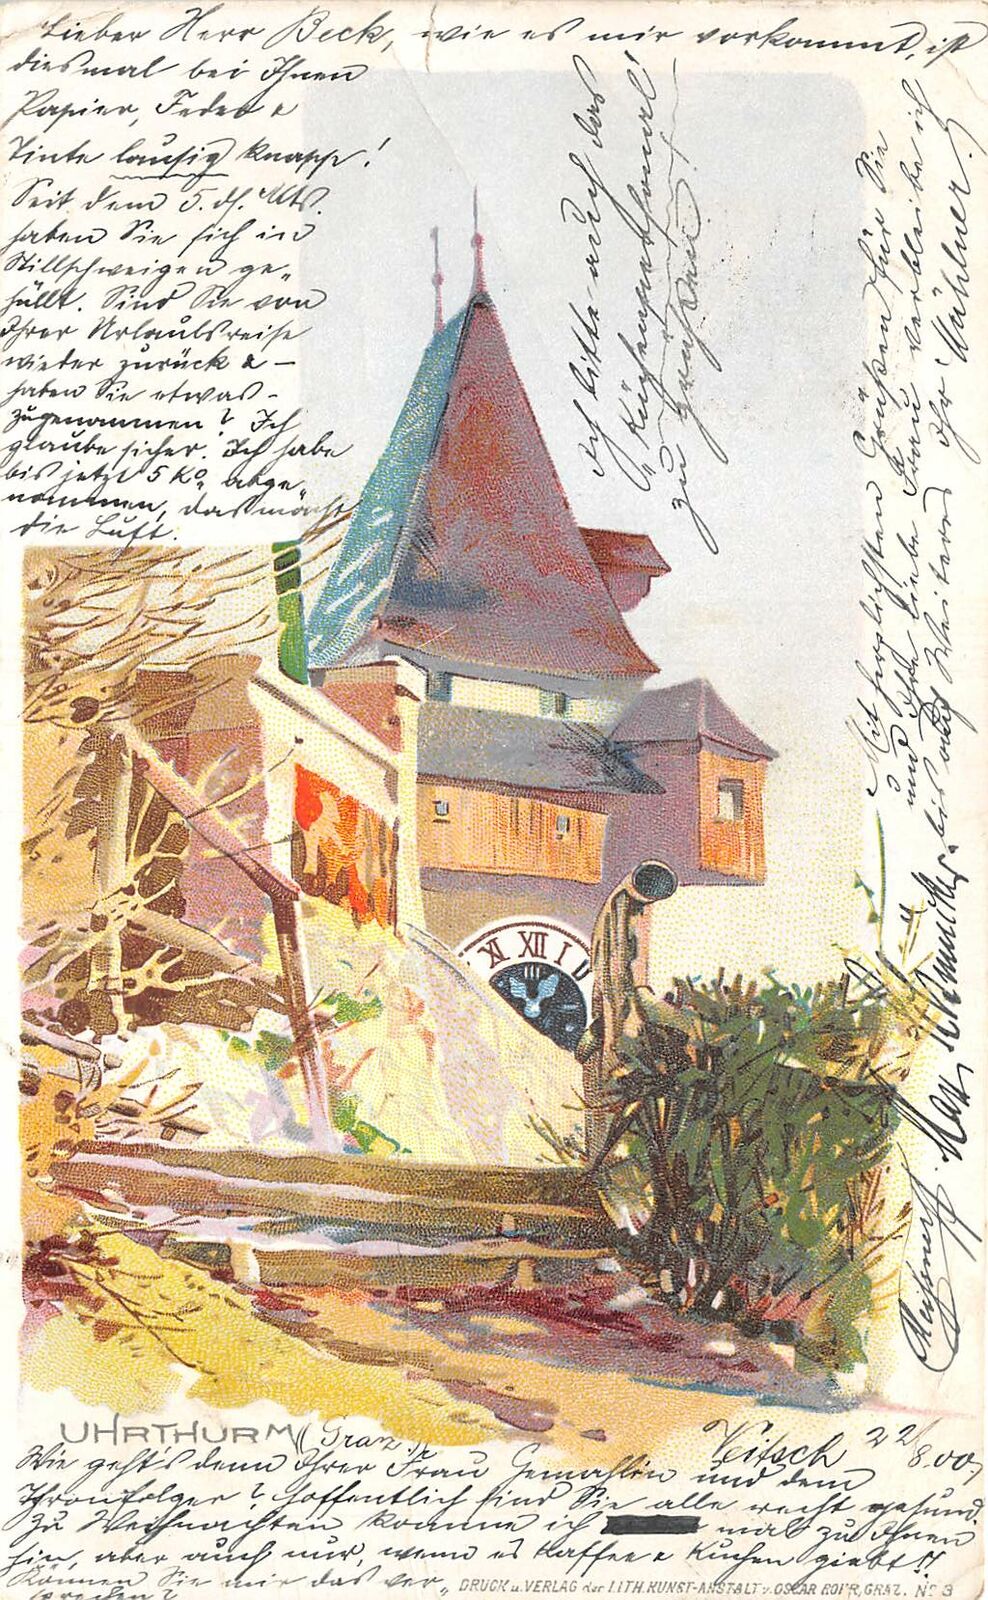 Lieber Herr Beck, wie es mir vorkommt, ist
diesmal bei Ihnen
Papier, Feder &
Tinte lausig knapp!
Seit dem 5. ds. Mts.
haben Sie sich in
Stillschweigen ge„
hüllt. Sind Sie von
Ihrer Urlaubsreise
wieder zurück & —
haben Sie etwas-
zugenommen? Ich
glaube sicher. Ich habe
bis jetzt 5 Ko abge
nommen, das macht
die Luft.
Ich bitte auch das
„Küchenpersonal"
zu grüßen!
Mit herzlichsten Grüßen für Sie
und Ihre liebe Frau verbleibe ich
bis auf Weiteres Ihr
XI XII I
UHRTHURM (Graz.)
Veitsch 22/8.00.
Wie geht's denn Ihrer Frau Gemahlin und dem
Thronfolger? Hoffentlich sind Sie alle recht gesund.
Zu Weihnachten komme ich mal zu Ihnen
hin, aber auch nur, wenn es Kaffee & Kuchen giebt!!
Können Sie mir das ver„
sprechen?
DRUCK u. VERLAG der LITH. KUNST-ANSTALT v. OSCAR ROHR, GRAZ. No 3